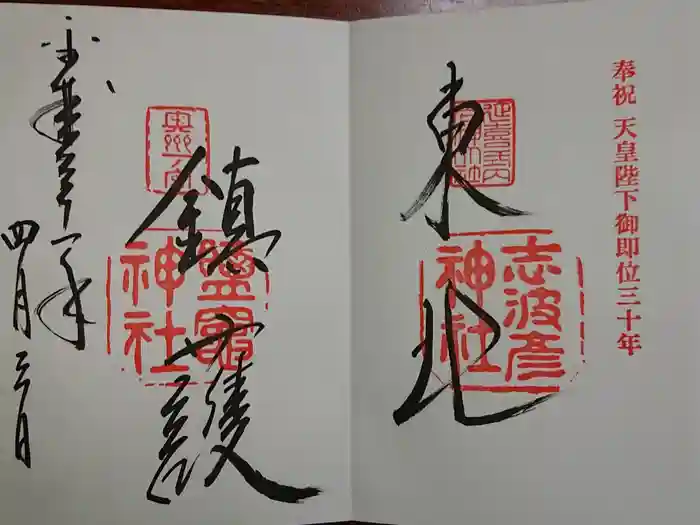 奉祝 天皇陛下御即位三十年
東北
志波彦
神社
鎮護
鹽竈
神社
平成三十一年
四月三日